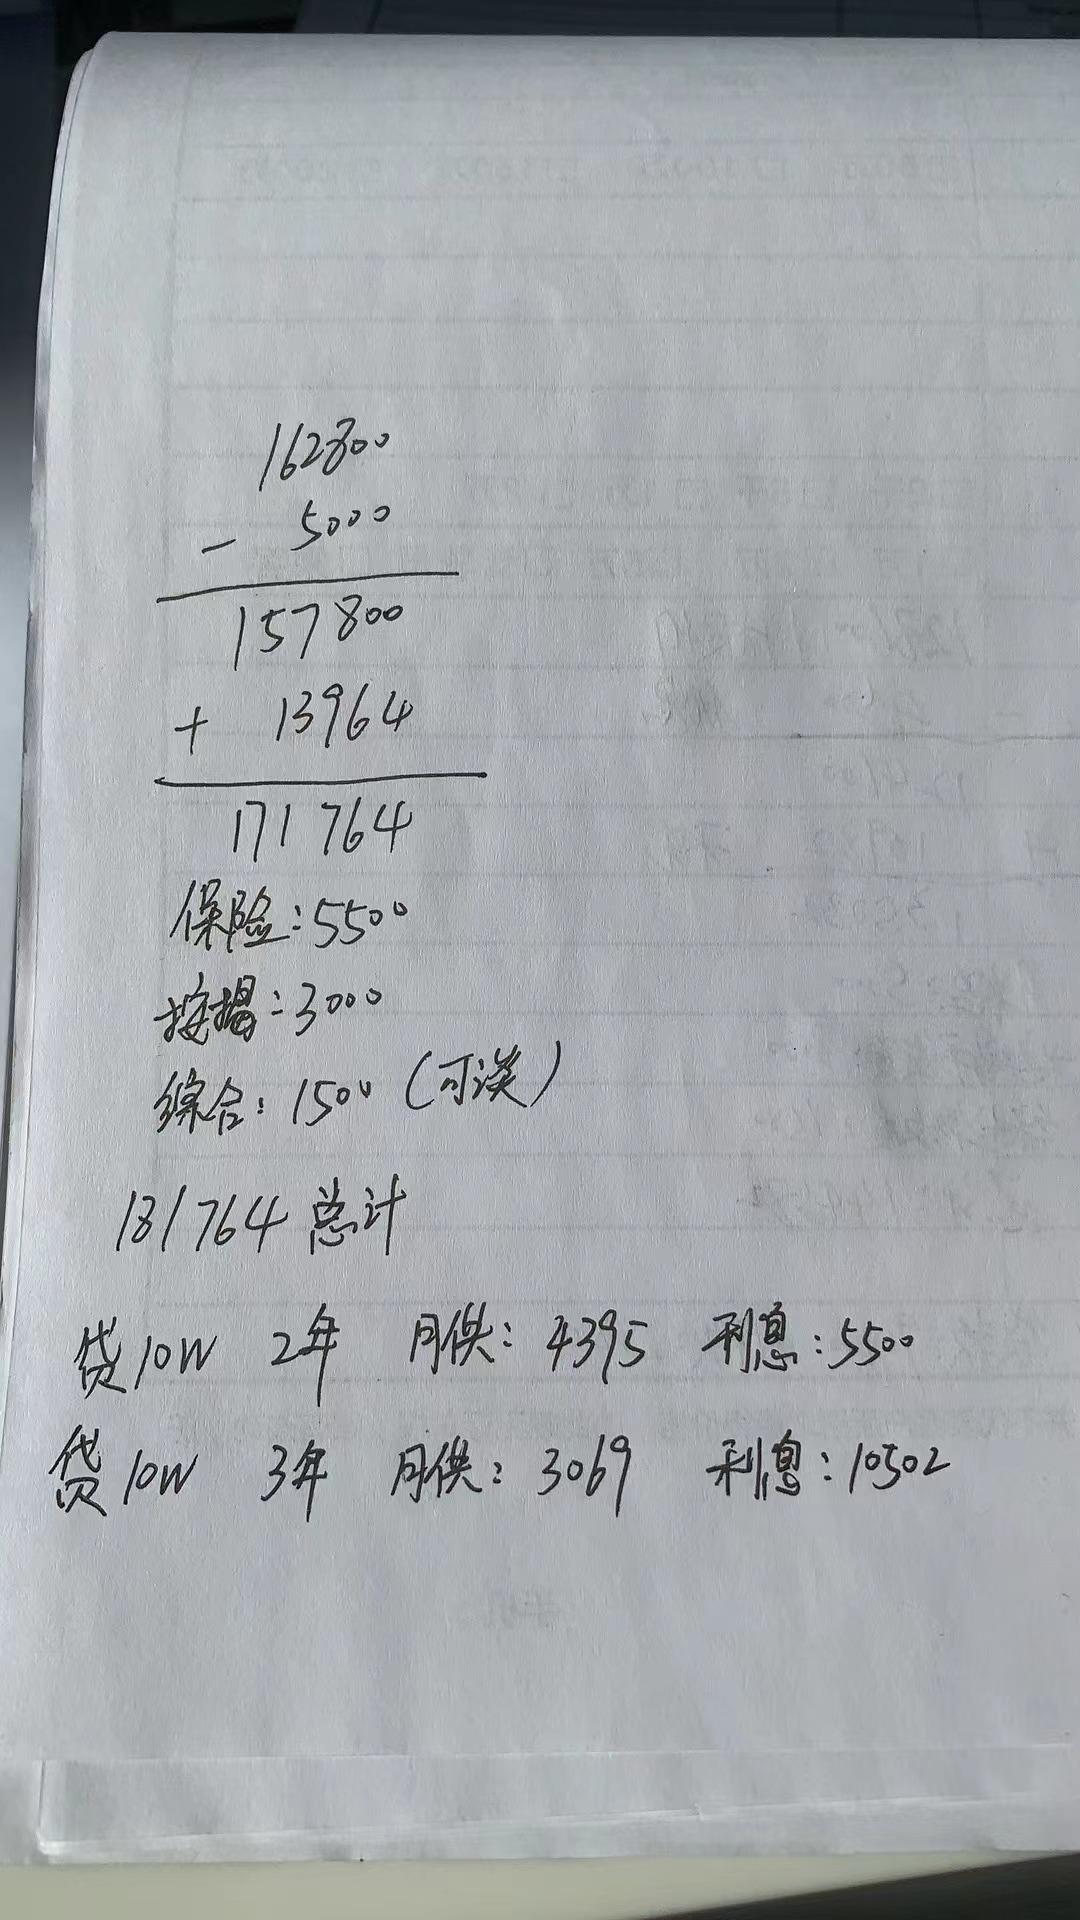 162800
- 5000
157800
+ 13964
171764
保险:5500
按揭:3000
综合:1500(可谈)
181764总计
贷10W 2年 月供:4395 利息:5500
贷10W 3年 月供:3069 利息:10502